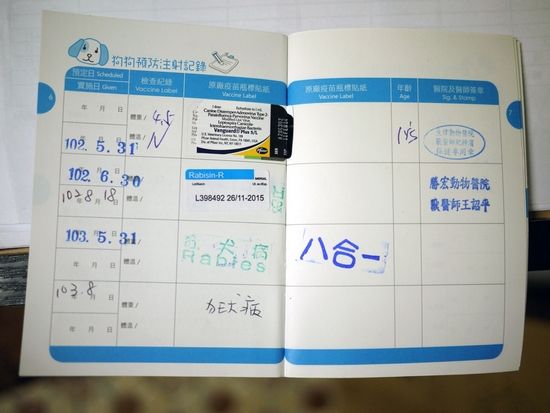 狗狗預防注射記錄
預定日 Scheduled
實施日 Given
檢查紀錄
Vaccine Label
原廠疫苗瓶標貼紙
Vaccine Label
原廠疫苗瓶標貼紙
Vaccine Label
年齡
Age
醫院及醫師簽章
Sig. & Stamp
6
7
年 月 日
體重 /
4.5
Canine Distemper-Adenovirus Type 2-
Parainfluenza-Parvovirus Vaccine
Vanguard® Plus 5/L
Pfizer
體溫 /
N
102. 5. 31
102. 6. 30
體重 /
Rabisin-R
MERIAL
L398492 26/11-2015
102年 8月 18日
體溫 /
勝宏動物醫院
獸醫師王詔平
103. 5. 31
體重 /
犬病
Rabies
八合一
年 月 日
體溫 /
103.8
體重 /
年 月 日
體溫 /
狂犬病